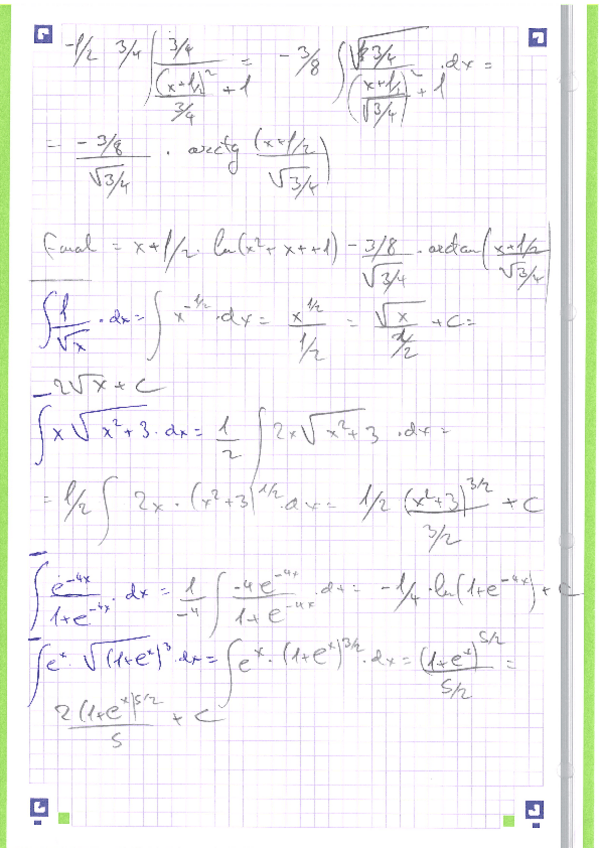 -1/2 3/4 ∫ 3/4 / ((x+1/2)²/(3/4) + 1) = -3/8 ∫ √3/4 / (((x+1/2)/√3/4)² + 1) · dx =
= -3/8 / √3/4 · arctg ((x+1/2)/√3/4)
Final = x+1/2 · ln(x²+x++1) - 3/8 / √3/4 · arctan((x+1/2)/√3/4)
∫ 1/√x · dx = ∫ x^(-1/2) · dx = x^(1/2) / 1/2 = √x / 1/2 + C =
2√x + C
∫ x √(x²+3) · dx = 1/2 ∫ 2x √(x²+3) · dx =
= 1/2 ∫ 2x · (x²+3)^(1/2) · dx = 1/2 (x²+3)^(3/2) / 3/2 + C
∫ e^(-4x) / (1+e^(-4x)) · dx = 1/-4 ∫ -4e^(-4x) / (1+e^(-4x)) · dx = -1/4 · ln(1+e^(-4x)) + C
∫ e^x · √(1+e^x)³ · dx = ∫ e^x · (1+e^x)^(3/2) · dx = (1+e^x)^(5/2) / 5/2 =
2(1+e^x)^(5/2) / 5 + C